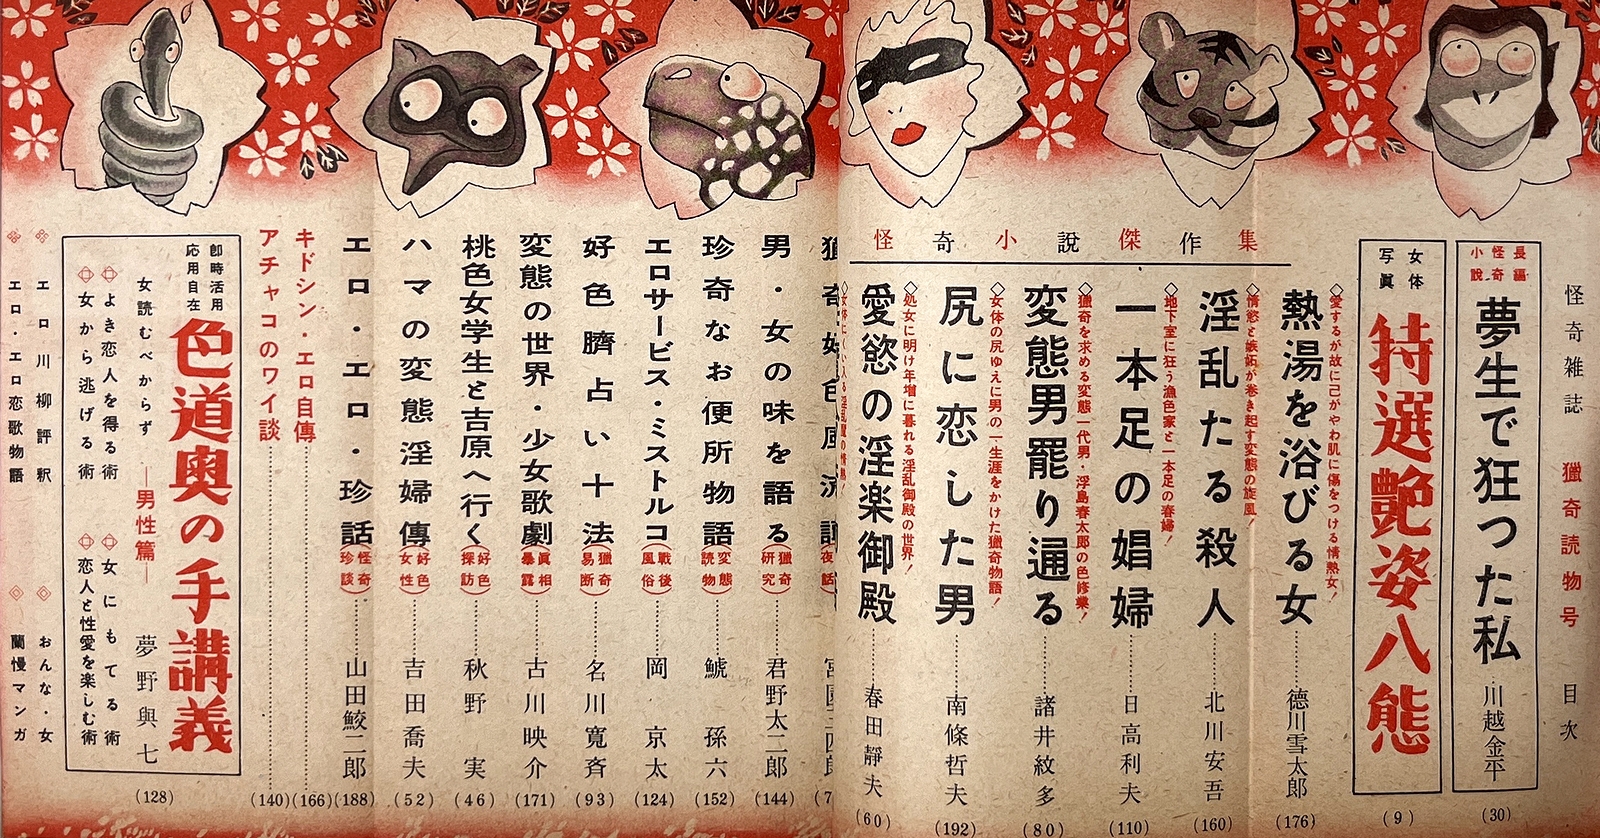 怪奇雑誌 獵奇読物号 目次
長編怪奇小說 夢生で狂った私 川越金平 (30)
女体写眞 特選艶姿八態 (9)
怪奇小說傑作集
◇愛するが故に己がやわ肌に傷をつける情熱女!
熱湯を浴びる女 德川雪太郎 (176)
◇情慾と嫉妬が巻き起す変態の旋風!
淫乱たる殺人 北川安吾 (160)
◇地下室に狂う漁色家と一本足の春婦!
一本足の娼婦 日高利夫 (110)
◇獵奇を求める変態一代男・浮島春太郎の色修業!
変態男罷り通る 諸井紋多 (80)
◇女体の尻ゆえに男の一生涯をかけた獵奇物語!
尻に恋した男 南條哲夫 (192)
◇処女に明け年増に暮れる淫乱御殿の世界!
愛慾の淫楽御殿 春田靜夫 (60)
男・女の味を語る (獵奇研究) 君野太二郎 (144)
珍奇なお便所物語 (変態読物) 鯱孫六 (152)
エロサービス・ミストルコ (戰後風俗) 岡京太 (124)
好色臍占い十法 (獵奇易断) 名川寬斉 (93)
変態の世界・少女歌劇 (眞相暴露) 古川映介 (171)
桃色女学生と吉原へ行く (好色探訪) 秋野実 (46)
ハマの変態淫婦傳 (好色女性) 吉田喬夫 (52)
エロ・エロ・珍話 (怪奇珍談) 山田鮫二郎 (188)
キドシン・エロ自傳 (166)
アチャコのワイ談 (140)
卽時活用応用自在 色道奥の手講義
女読むべからず ―男性篇― 夢野與七 (128)
◇よき恋人を得る術 ◇女にもてる術
◇女から逃げる術 ◇恋人と性愛を楽しむ術
エロ川柳評釈 ◇おんな・女
エロ・エロ恋歌物語 ◇蘭慢マンガ